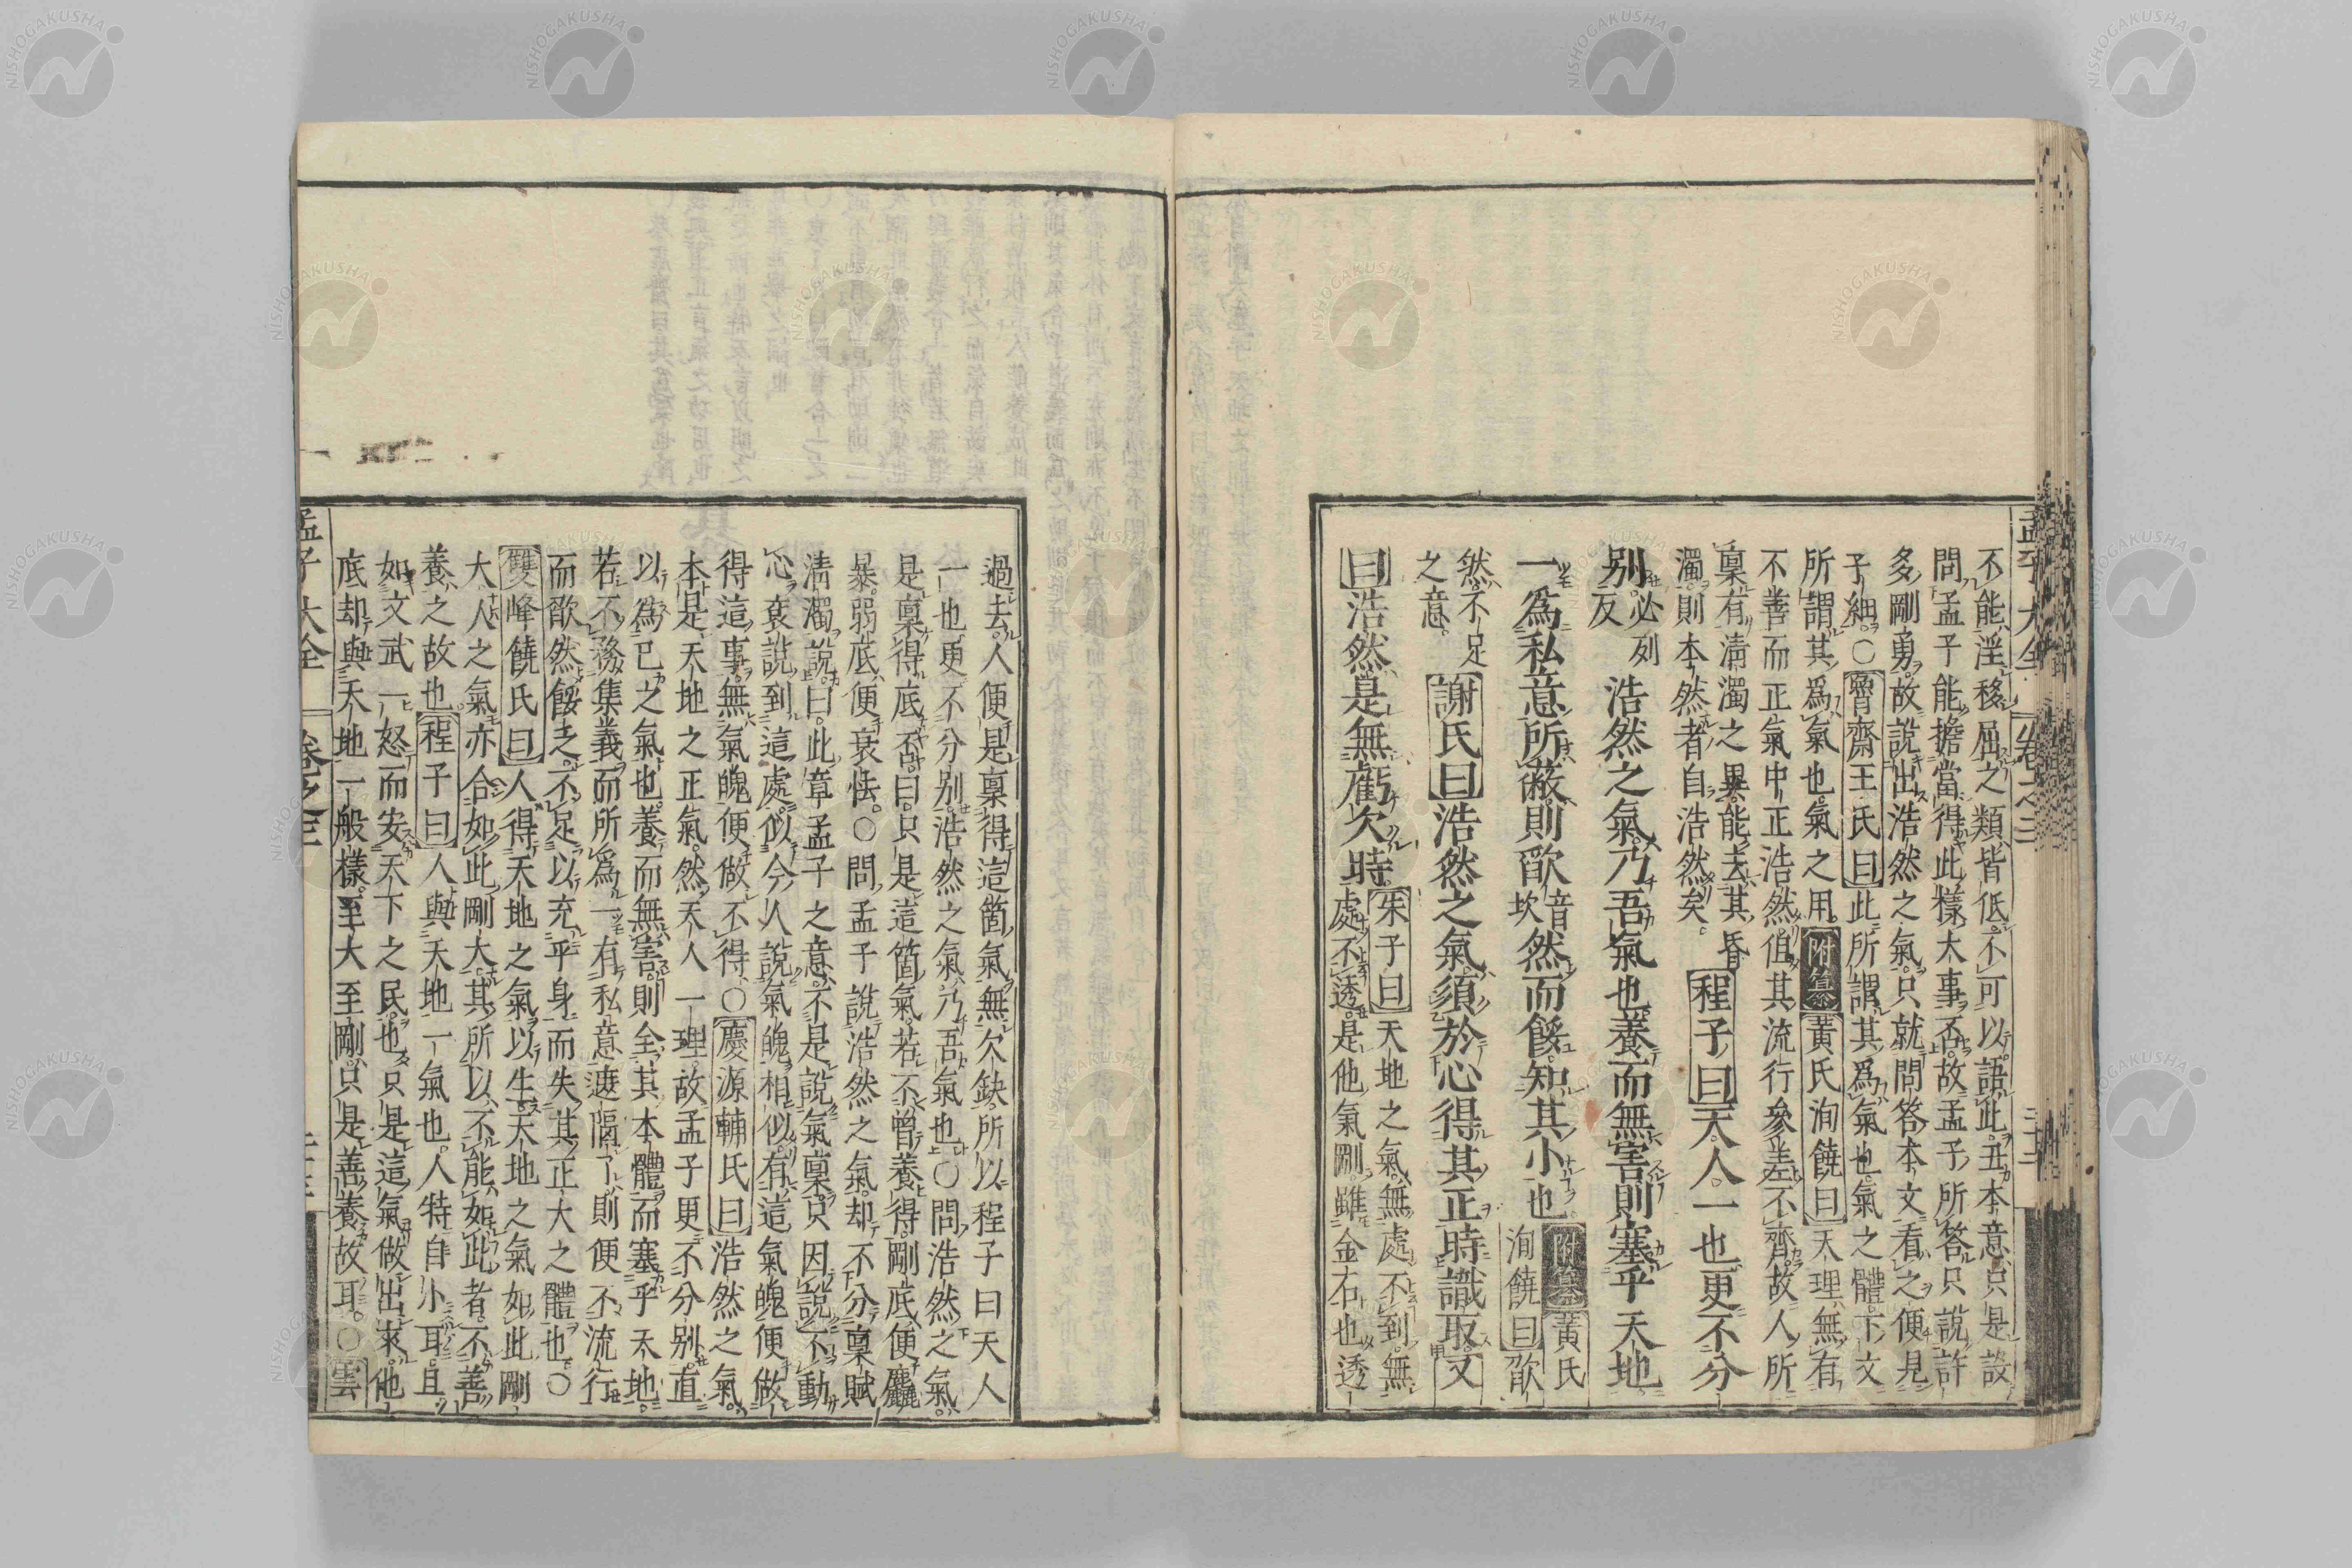 孟子大全 卷之三
不能淫移屈之類皆低不可以語此丑本意只是設
問孟子能擔當得此樣大事否故孟子所答只說許
多剛勇故說出浩然之氣只就問答本文看之便見
子細○魯齋王氏曰此所謂其爲氣也氣之體下文
所謂其爲氣也氣之用附纂黃氏洵饒曰天理無有
不善而正氣中正浩然但其流行參差不齊故人所
稟有清濁之異能去其昏
濁則本然者自浩然矣。
程子曰天人一也更不分
別必列
反浩然之氣乃吾氣也養而無害則塞乎天地
一爲私意所蔽則欿音
坎然而餒知其小也附纂黃氏
洵饒曰欿
然不足
之意。謝氏曰浩然之氣須於心得其正時識取又
曰浩然是無虧欠時。朱子曰天地之氣無處不到無
處不透是他氣剛雖金石也透
過去人便是稟得這箇氣無欠缺所以程子曰天人
一也更不分別浩然之氣乃吾氣也○問浩然之氣
是稟得底否曰只是這箇氣若不曾養得剛底便麤
暴弱底便衰怯○問孟子說浩然之氣却不分稟賦
清濁說曰此章孟子之意不是說氣稟只因說不動
心衮說到這處似今人說氣魄相似有這氣魄便做
得這事無氣魄便做不得○慶源輔氏曰浩然之氣
本是天地之正氣然天人一理故孟子更不分別直
以爲己之氣也養而無害則全其本體而塞乎天地
若不務集義而所爲一有私意遮隔了則便不流行
而欿然餒之不足以充乎身而失其正大之體也○
雙峰饒氏曰人得天地之氣以生天地之氣如此剛
大人之氣亦合如此剛大其所以不能如此者不善
養之故也程子曰人與天地一氣也人特自小耳且
如文武一怒而安天下之民也只是這氣做出來他
底却與天地一般樣至大至剛只是善養故耳○雲
孟子大全 卷之三